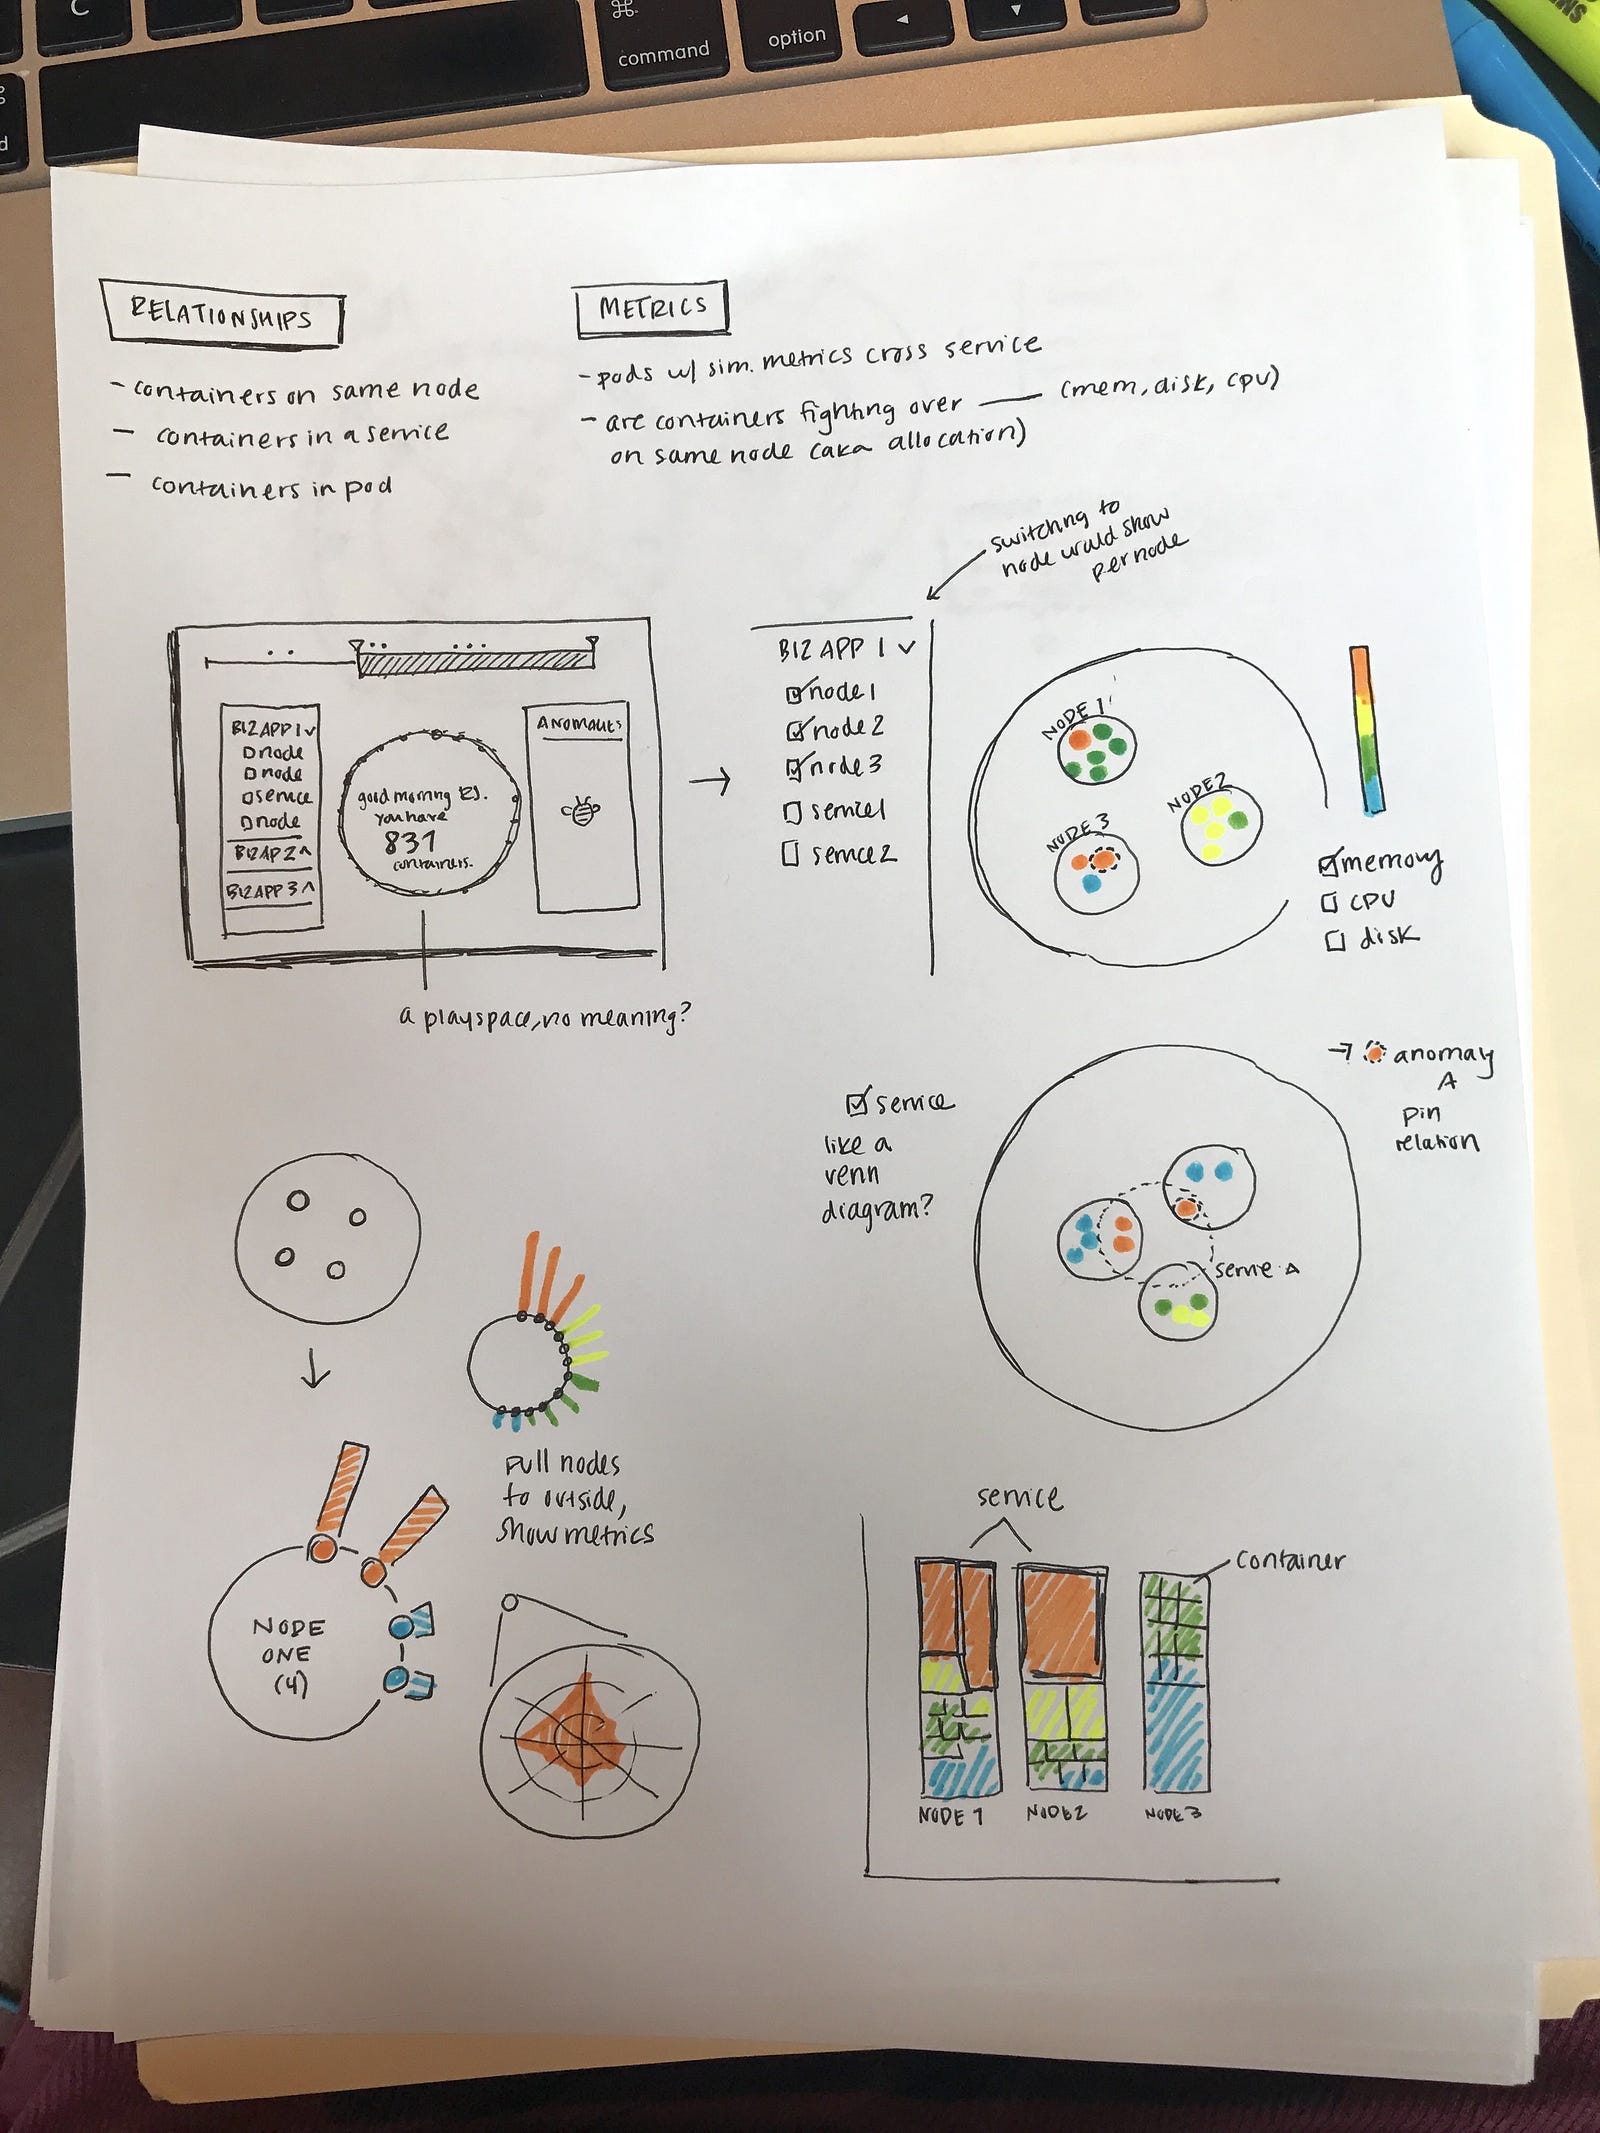 C
⌘
command
option
◄
▼
⌘
d
ENS
RELATIONSHIPS
- containers on same node
- containers in a service
- containers in pod
METRICS
- pods w/ sim. metrics cross service
- are containers fighting over ___ (mem, disk, cpu)
on same node (aka allocation)
switching to
node would show
per node
BIZ APP 1
node
node
service
node
BIZ AP 2
BIZ APP 3
good morning
you have
831
containers.
a playspace, no meaning?
BIZ APP 1
node 1
node 2
node 3
service 1
service 2
NODE 1
NODE 2
NODE 3
memory
CPU
disk
service
like a
venn
diagram?
service A
→ anomaly
A
pin
relation
pull nodes
to outside,
show metrics
NODE
ONE
(4)
service
container
NODE 1
NODE 2
NODE 3